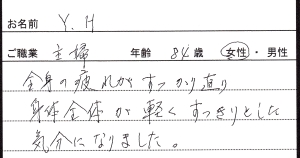 お名前 Y.H
ご職業 主婦 年齢 84歳 女性・男性
全身の疲れがすっかり直り
身体全体が軽くすっきりとした
気分になりました。